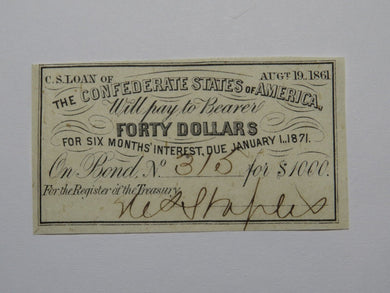 C.S. LOAN OF AUGT. 19. 1861.
THE CONFEDERATE STATES OF AMERICA.
Will pay to Bearer
FORTY DOLLARS
FOR SIX MONTHS' INTEREST, DUE JANUARY 1.. 1871.
On Bond, No 315 for $1000.
For the Register of the Treasury.
Staples